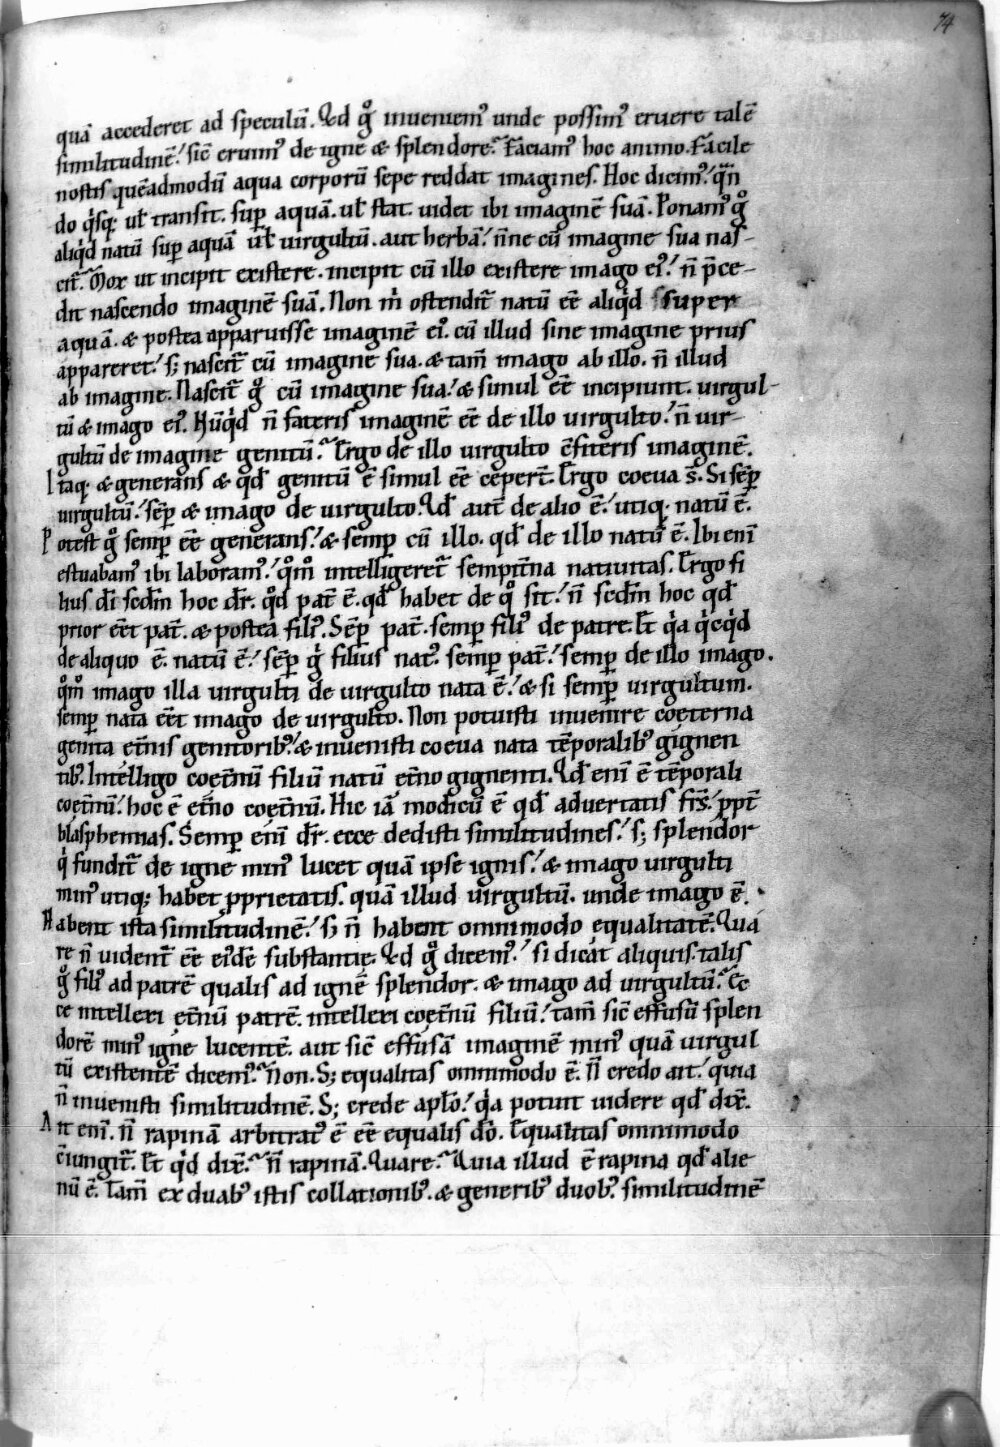 74
quā accederet ad speculū. Qd gͦ inueniemꝰ unde possimꝰ eruere talē
similitudinē? sic̄ eruimꝰ de igne & splendore? Faciamꝰ hoc animo. Facile
nostis quēadmodū aqua corporū sepe reddat imagines. Hoc dicimꝰ! qn̄
do qͥsq; ul̄ transit. suꝑ aquā. ul̄ stat. uidet ibi imaginē suā. Ponamꝰ gͦ
aliqͥd natū suꝑ aquā ul̄ virgultū. aut herbā! n̄ne cū imagine sua nas-
cit̄? Mox ut incipit existere. incipit cū illo existere imago eiꝰ! n̄ p̄ce-
dit nascendo imaginē suā. Non m̄ ostendit̄ natū eē aliqͥd super
aquā. & postea apparuisse imaginē eiꝰ. cū illud sine imagine prius
appareret! s; nascit̄ cū imagine sua. & tam̄ imago ab illo. n̄ illud
ab imagine. Nascit̄ gͦ cū imagine sua! & simul eē incipiunt. virgul-
tū & imago eiꝰ. Nūqͥd n̄ fateris imaginē eē de illo virgulto! n̄ vir-
gultū de imagine genitū? Ergo de illo virgulto c̄fiteris imaginē.
Itaq. & generans & qd̄ genitū ē simul eē ceper̄t. Ergo coeua s̄. Si sēꝑ
uirgultū! sēꝑ & imago de uirgulto. Qd̄ aut̄ de alio ē! utiq; natū ē.
Potest gͦ semꝑ eē generans! & semꝑ cū illo. qd̄ de illo natū ē. Ibi enī
estuabamꝰ ibi laboramꝰ! qͦmͦ intelligeret̄ sempit̄na natiuitas. Ergo fi
lius dī scd̄m hoc dr̄. qͦd pat̄ ē. qd̄ habet de qͦ sit! n̄ scd̄m hoc qd̄
prior eēt pat̄. & postea filiꝰ. Sēꝑ pat̄. semꝑ filiꝰ de patre. Et qͥa qͥcqͥd
de aliquo ē. natū ē! sēꝑ gͦ filius natꝰ. semꝑ pat̄! semꝑ de illo imago.
qͦmͦ imago illa uirgulti de uirgulto nata ē! & si semꝑ uirgultum.
semꝑ nata eēt imago de uirgulto. Non potuisti inuenire coęterna
genita et̄nis genitoribꝰ! & inuenisti coeua nata tēporalibꝰ gignen
tibꝰ. Intelligo coęt̄nū filiū natū et̄no gignenti. Qd̄ enī ē tēporali
coęt̄nū! hoc ē et̄no coęt̄nū. Hic iā modicū ē qd̄ aduertatis fr̄s! ꝓpt̄
blasphemias. Semꝑ enī dr̄. ecce dedisti similitudines! s; splendor
qͥ fundit̄ de igne minꝰ lucet quā ipse ignis! & imago uirgulti
minꝰ utiq; habet ꝓprietatis. quā illud uirgultū. unde imago ē.
Habent ista similitudinē! s; n̄ habent omnimodo ęqualitatē. Qua
re n̄ uident̄ eē eiꝰdē substantię. Qd gͦ dicemꝰ! si dicat aliquis. talis
gͦ filiꝰ ad patrē qualis ad ignē splendor. & imago ad uirgultū? Ec
ce intellexi et̄nū patrē. intellexi coęt̄nū filiū! tam̄ sic̄ effusū splen
dorē minꝰ igne lucentē. aut sic̄ effusā imaginē minꝰ quā uirgul
tū existentē dicemꝰ? Non. S; equalitas omnimodo ē. N̄ credo ait! quia
n̄ inuenisti similitudinē. S; crede apl̄o! qͥa potuit uidere qd̄ dix̄.
Ait enī. n̄ rapinā arbitratꝰ ē eē equalis dō. Equalitas omnimodo
c̄iungit̄. Et qͥd dix̄? n̄ rapinā. Quare? Quia illud ē rapina qd̄ alie
nū ē. Tam̄ ex duabꝰ istis collationibꝰ. & generibꝰ duobꝰ. similitudinē